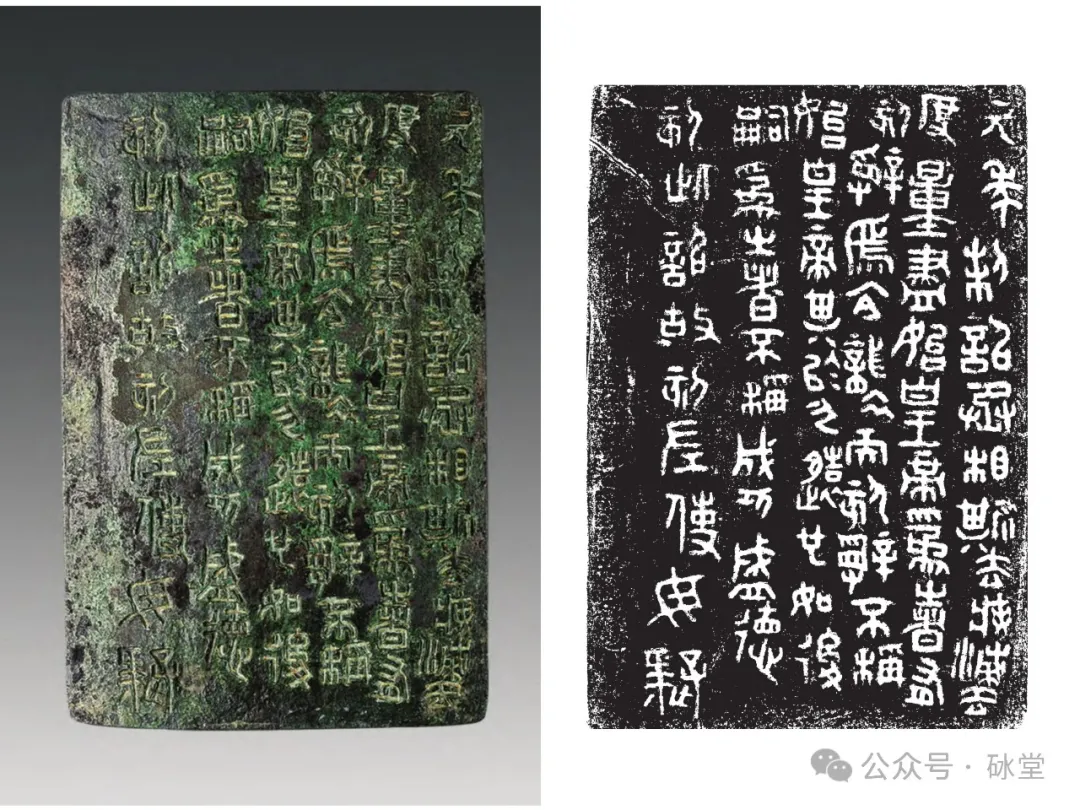 元年制詔丞相斯去疾法
度量盡始皇帝為之皆有
刻辭焉今襲號而刻辭不稱
始皇帝其於久遠也如後
嗣為之者不稱成功盛德
刻此詔故刻左使毋疑
元年制詔丞相斯去疾法
度量盡始皇帝為之皆有
刻辭焉今襲號而刻辭不稱
始皇帝其於久遠也如後
嗣為之者不稱成功盛德
刻此詔故刻左使毋疑
公众号·砅堂